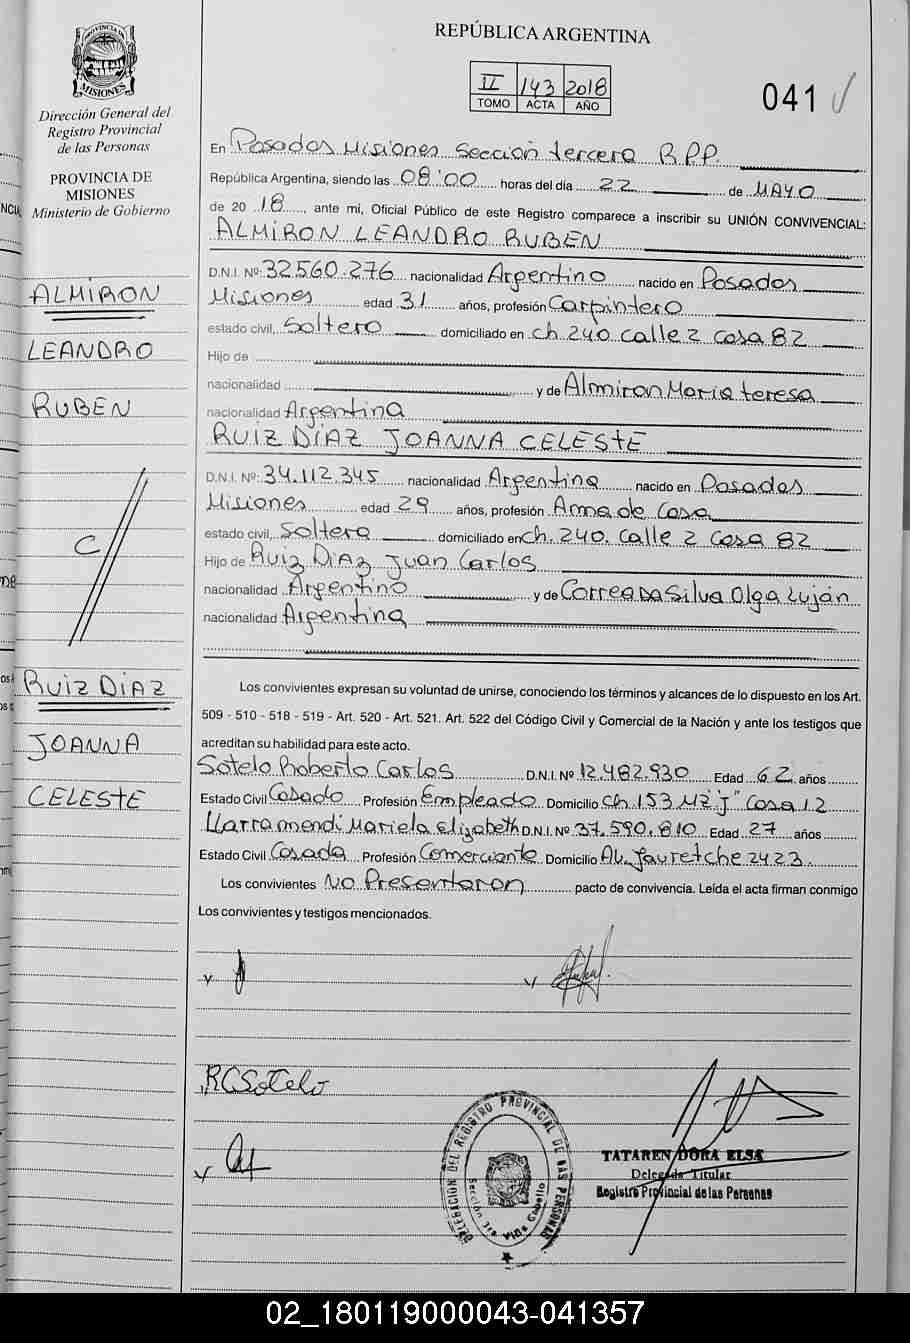 PROVINCIA DE
MISIONES
Dirección General del
Registro Provincial
de las Personas
PROVINCIA DE
MISIONES
Ministerio de Gobierno
ALMIRON
LEANDRO
RUBEN
C
RUIZ DIAZ
JOANNA
CELESTE
REPÚBLICA ARGENTINA
II 143 2018
TOMO ACTA AÑO
041
En Posadas Misiones Sección tercera R.P.P.
República Argentina, siendo las 08:00 horas del día 22 de MAYO
de 20 18, ante mi, Oficial Público de este Registro comparece a inscribir su UNIÓN CONVIVENCIAL:
ALMIRON LEANDRO RUBEN
D.N.I. Nº: 32.560.276 nacionalidad Argentino nacido en Posadas
Misiones edad 31 años, profesión Carpintero
estado civil, Soltero domiciliado en ch. 240 calle 2 casa 82
Hijo de
nacionalidad y de Almiron Maria teresa
nacionalidad Argentina
RUIZ DIAZ JOANNA CELESTE
D.N.I. Nº: 34.112.345 nacionalidad Argentina nacido en Posadas
Misiones edad 29 años, profesión Ama de Casa
estado civil, Soltera domiciliado en ch. 240. calle 2 casa 82
Hijo de Ruiz Diaz Juan Carlos
nacionalidad Argentino y de Correa Da Silva Olga Luján
nacionalidad Argentina
Los convivientes expresan su voluntad de unirse, conociendo los términos y alcances de lo dispuesto en los Art.
509 - 510 - 518 - 519 - Art. 520 - Art. 521. Art. 522 del Código Civil y Comercial de la Nación y ante los testigos que
acreditan su habilidad para este acto.
Sotelo Roberto Carlos D.N.I. Nº 12.482.930 Edad 62 años
Estado Civil Casado Profesión Empleado Domicilio Ch 153 Mz "J" Casa 12
Llarramendi Mariela Elizabeth D.N.I. Nº 37.590.810 Edad 27 años
Estado Civil Casada Profesión Comerciante Domicilio Av. Jauretche 2423.
Los convivientes No Presentaron pacto de convivencia. Leída el acta firman conmigo
Los convivientes y testigos mencionados.
RCSotelo
DELEGACIÓN DEL REGISTRO PROVINCIAL DE LAS PERSONAS
Sección 3ra Villa Cabello
TATAREN DORA ELSA
Delegada Titular
Registro Provincial de las Personas
02_180119000043-041357